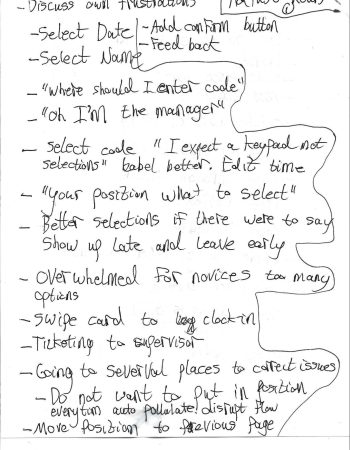 - Discuss own frustrations
- Select Date - Add confirm button
- Select Name - Feed back
- "Where should I enter code"
- "Oh I'm the manager"
- select code "I expect a keypad not
selections" babel better. Edit time
- "Your position what to select"
- Better selections if there were to say
show up late and leave early
- Overwhelmed for novices too many
options
- swipe card to clock-in
- Ticketing to supervisor
- Going to severval places to correct issues
- Do not want to put in position
everytim auto pollulate! disrupt flow
- Move position to previous page